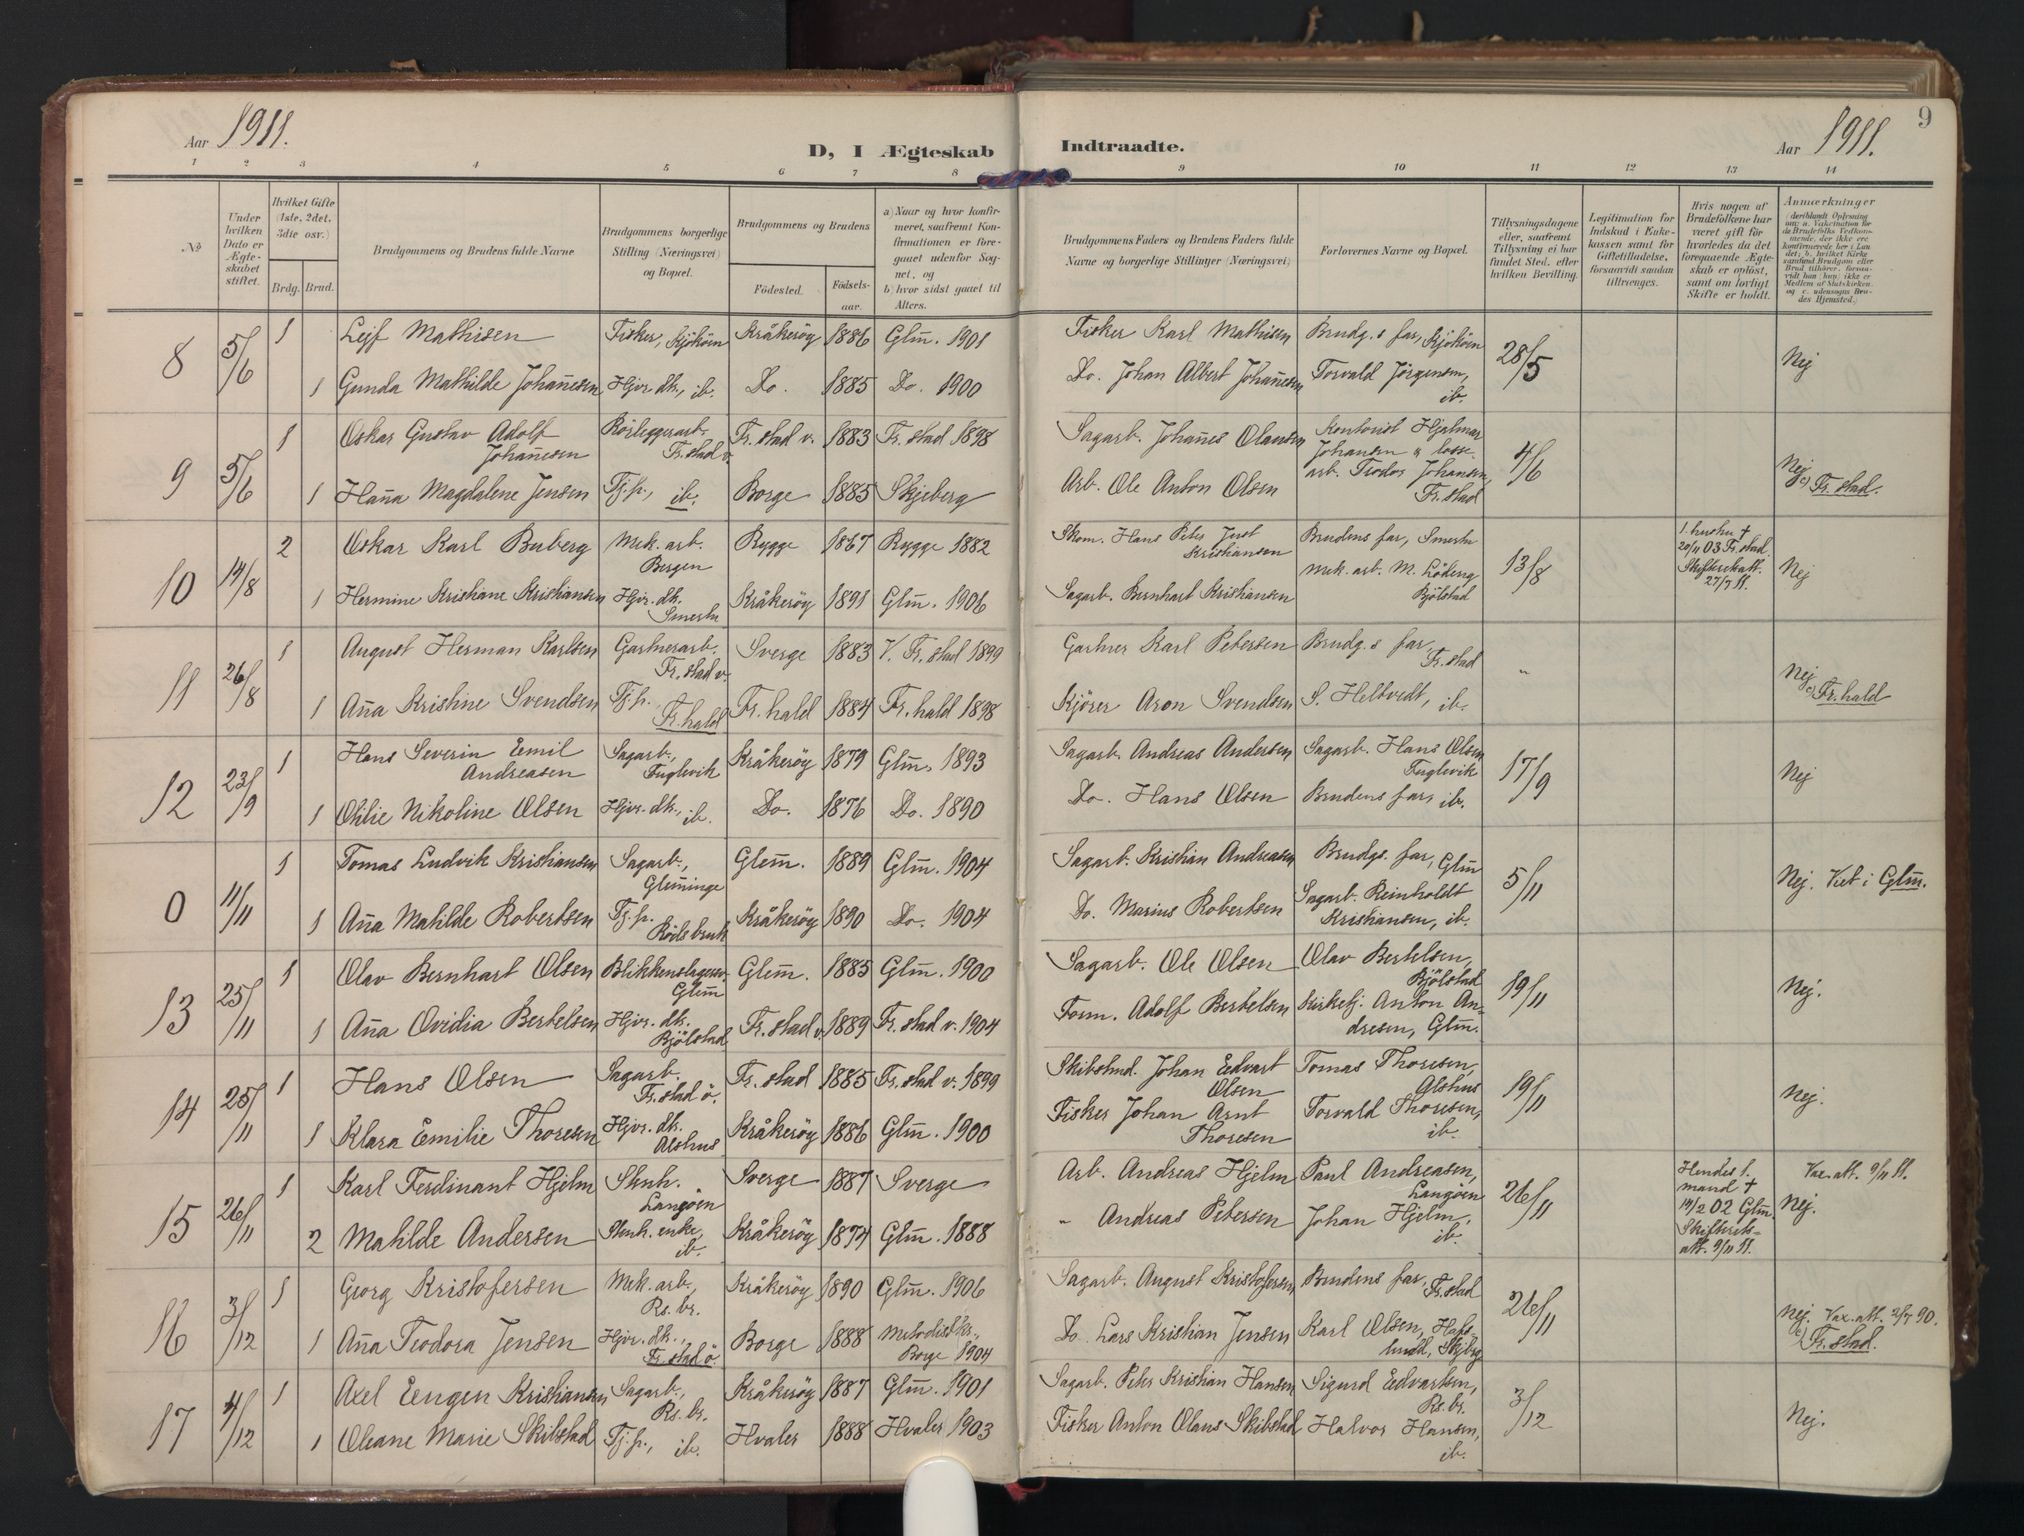 9
Aar 1911.
D, I Ægteskab Indtraadte.
Aar 1911.
1 2 3 4 5 6 7 8 9 10 11 12 13 14
No
Under hvilken Dato er Ægteskabet stiftet.
Hvilket Gifte (1ste, 2det, 3die osv.)
Brdg. Brud.
Brudgommens og Brudens fulde Navne
Brudgommens borgerlige Stilling (Næringsvei) og Bopæl.
Brudgommens og Brudens
Fødested. Fødselsaar.
a) Naar og hvor konfirmeret, saafremt Konfirmationen er foregaaet udenfor Sognet, og
b) hvor sidst gaaet til Alters.
Brudgommens Faders og Brudens Faders fulde Navne og borgerlige Stillinger (Næringsvei)
Forlovernes Navne og Bopæl.
Tillysningsdagene eller, saafremt Tillysning ei har fundet Sted, efter hvilken Bevilling.
Legitimation for Indskud i Enkekassen samt for Giftetilladelse, forsaavidt saadan tiltrænges.
Hvis nogen af Brudefolkene har været gift før hvorledes da det foregaaende Ægteskab er opløst, samt om lovligt Skifte er holdt.
Anmærkninger
8 5/6 1 Lejf Mathisen Fisker, Kjøkøen Kråkerøy 1886 Glm. 1901 Fisker Karl Mathisen Brudg.s far, Kjøkøen 28/5 Nej
1 Gunda Mathilde Johañesen Hjvr. dk., ib. Do. 1885 Do. 1900 Do. Johan Albert Johañesen Torvald Jørgensen, ib.
9 5/6 1 Oskar Gustav Adolf Johañesen Rørleggerarb. Fr.stad v. Fr.stad v. 1883 Fr.stad 1898 Sagarb. Johañes Olausen Kontorist Hjalmar Johansen & losse- 4/6 Nej
1 Haña Magdalene Jensen Tj.p., ib. Borge 1885 Skjeberg Arb. Ole Anton Olsen arb. Teodor Johansen, Fr.stad c) Fr.stad.
10 14/8 2 Oskar Karl Buberg Mek. arb. Bergen Rygge 1867 Rygge 1882 Skom. Hans Peter Just Kristiansen Brudens far, Smertu 13/8 1. hustru † 20/11 03 Fr.stad. Skifteretsatt. 27/7 11. Nej
1 Hermine Kristiane Kristiansen Hjvr. dk. Smertu Kråkerøy 1891 Glm. 1906 Sagarb. Bernhart Kristiansen Mek. arb. M. Lødeng Bjølstad
11 26/8 1 August Herman Karlsen Gartnerarb. Fr.stad v. Sverge 1883 V. Fr.stad 1899 Gartner Karl Petersen Brudg.s far, Fr.stad „ Nej
1 Aña Kristine Svendsen Tj.p. Fr.hald Fr.hald 1884 Fr.hald 1898 Kjører Aron Svendsen S. Heltvedt, ib. c) Fr.hald
12 23/9 1 Hans Severin Emil Andreasen Sagarb., Fuglevik Kråkerøy 1879 Glm. 1893 Sagarb. Andreas Andersen Sagarb. Hans Olsen Fuglevik 17/9 Nej
1 Otilie Nikoline Olsen Hjvr. dk., ib. Do. 1876 Do. 1890 Do. Hans Olsen Brudens far, ib.
0 11/11 1 Tomas Ludvik Kristiansen Sagarb., Glem̄inge Glem̄. 1889 Glm̄. 1904 Sagarb. Kristian Andreasen Brudgs. far, Glm̄ 5/11 Nej. Viet i Glm̄.
1 Aña Matilde Robertsen Tj.p. Røds bruk Kråkerøy 1890 Do. 1904 Do. Marius Robertsen Sagarb. Reinholdt Kristiansen, ib.
13 25/11 1 Olav Bernhart Olsen Blikkenslagersv. Glem̄ Glem̄. 1885 Glm̄. 1900 Sagarb. Ole Olsen Olav Bertelsen, Bjølstad 19/11 Nej.
1 Aña Ovidia Bertelsen Hjvr. dk. Bjølstad Fr.stad v. 1889 Fr.stad v. 1904 Form. Adolf Bertelsen Kirketj. Anton Andresen, Glm̄.
14 25/11 1 Hans Olsen Sagarb. Fr.stad ö. Fr.stad 1885 Fr.stad v. 1899 Skibstmd. Johan Edvart Olsen Tomas Thoresen, Alshus 19/11 Nej.
1 Klara Emilie Thoresen Hjvr. dk. Alshus Kråkerøy 1886 Glm̄. 1900 Fisker Johan Arnt Thoresen Torvald Thoresen, ib.
15 26/11 1 Karl Ferdinant Hjelm Stenh. Langøen Sverge 1887 Sverge Arb. Andreas Hjelm Paul Andreasen, Langøen 26/11 Hendes 1. mand † 14/2 02 Glm̄. Skifterets- att. 9/11 11. Nej. Vax.att. 9/11 11.
2 Matilde Andersen Stenh. enke, ib. Kråkerøy 1874 Glm̄. 1888 „ Andreas Petersen Johan Hjelm, ib.
16 3/12 1 Georg Kristofersen Mek. arb., Rs. br. Kråkerøy 1890 Glm̄. 1906 Sagarb. August Kristofersen Brudens far, Fr.stad 26/11 Nej. Vax.att. 2/7 90.
1 Aña Teodora Jensen Hjvr. dk., Fr.stad ö. Borge 1888 Metodistk., Borge 1904 Do. Lars Kristian Jensen Karl Olsen, Hafslund, Skjbrg c) Fr.stad.
17 4/12 1 Axel Eugen Kristiansen Sagarb., Rs. br. Kråkerøy 1887 Glm̄. 1901 Sagarb. Peter Kristian Hansen Sigurd Edvartsen, Rs. br. 3/12 Nej.
1 Oleane Marie Skibstad Tj.p., ib. Hvaler 1888 Hvaler 1903 Fisker Anton Olaus Skibstad Halvor Hansen, ib.